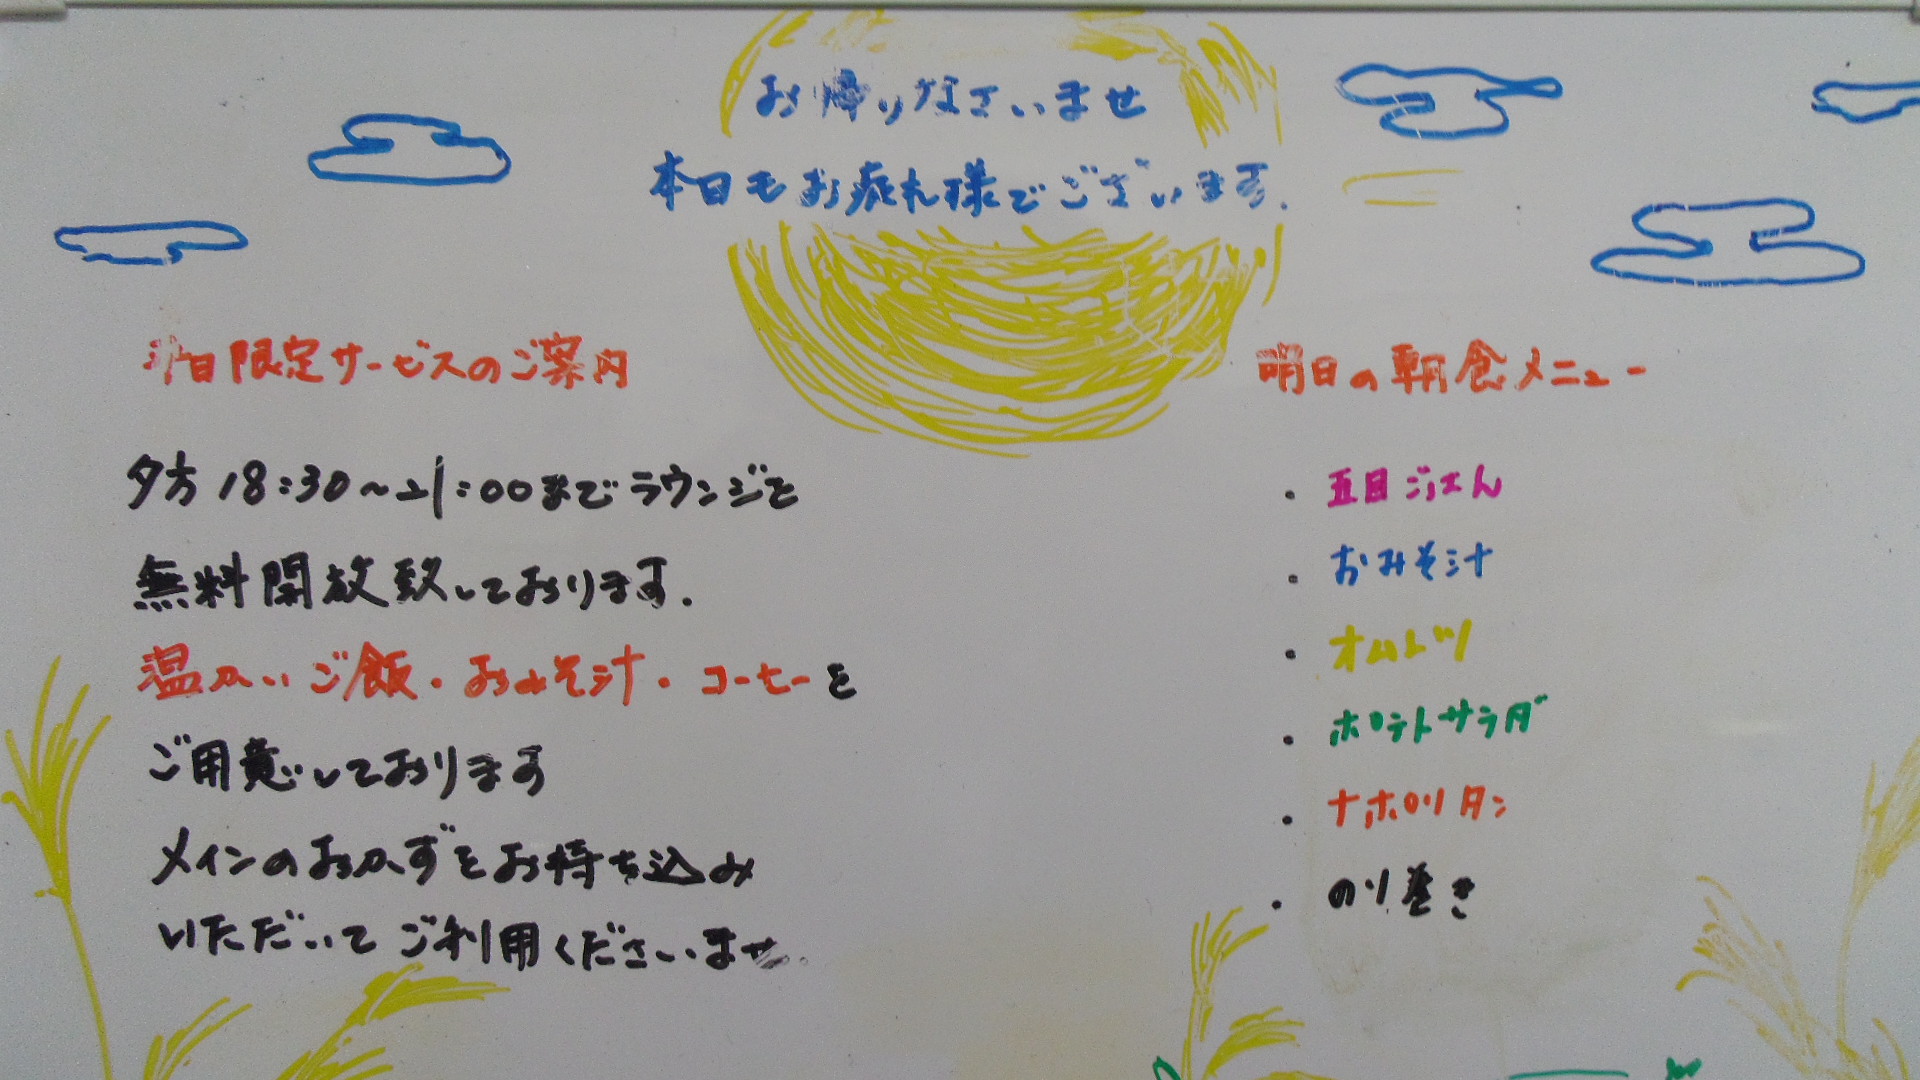 お帰りなさいませ
本日もお疲れ様でございます.
平日限定サービスのご案内
夕方18:30～21:00までラウンジを
無料開放致しております.
温かいご飯・おみそ汁・コーヒーを
ご用意しております
メインのおかずをお持ち込み
いただいてご利用くださいませ.
明日の朝食メニュー
・五目ごはん
・おみそ汁
・オムレツ
・ポテトサラダ
・ナポリタン
・のり巻き